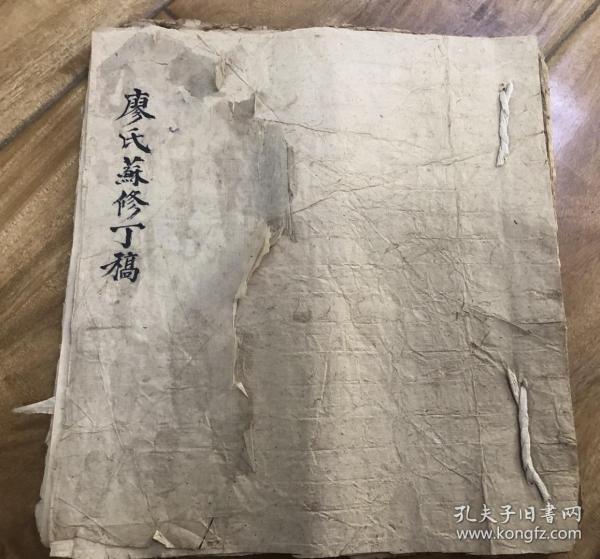 廖氏蘇修丁稿
孔夫子旧书网
www.kongfz.com